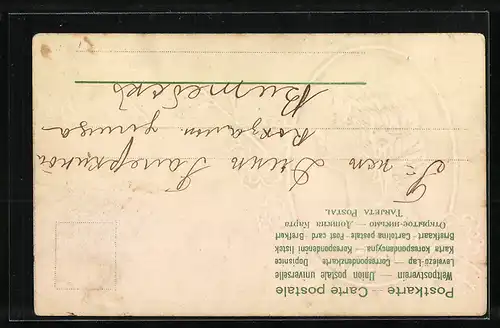 Postkarte — Carte postale
Weltpostverein — Union postale universelle
Levelező-Lap — Correspondenzkarte — Dopisnice
Karta korespondencyjna — Korespondenční lístek
Briefkaart — Cartolina postale — Post card — Brefkort
Открытое письмо — Дописна Карта
Tarjeta Postal
улица
Витебскъ